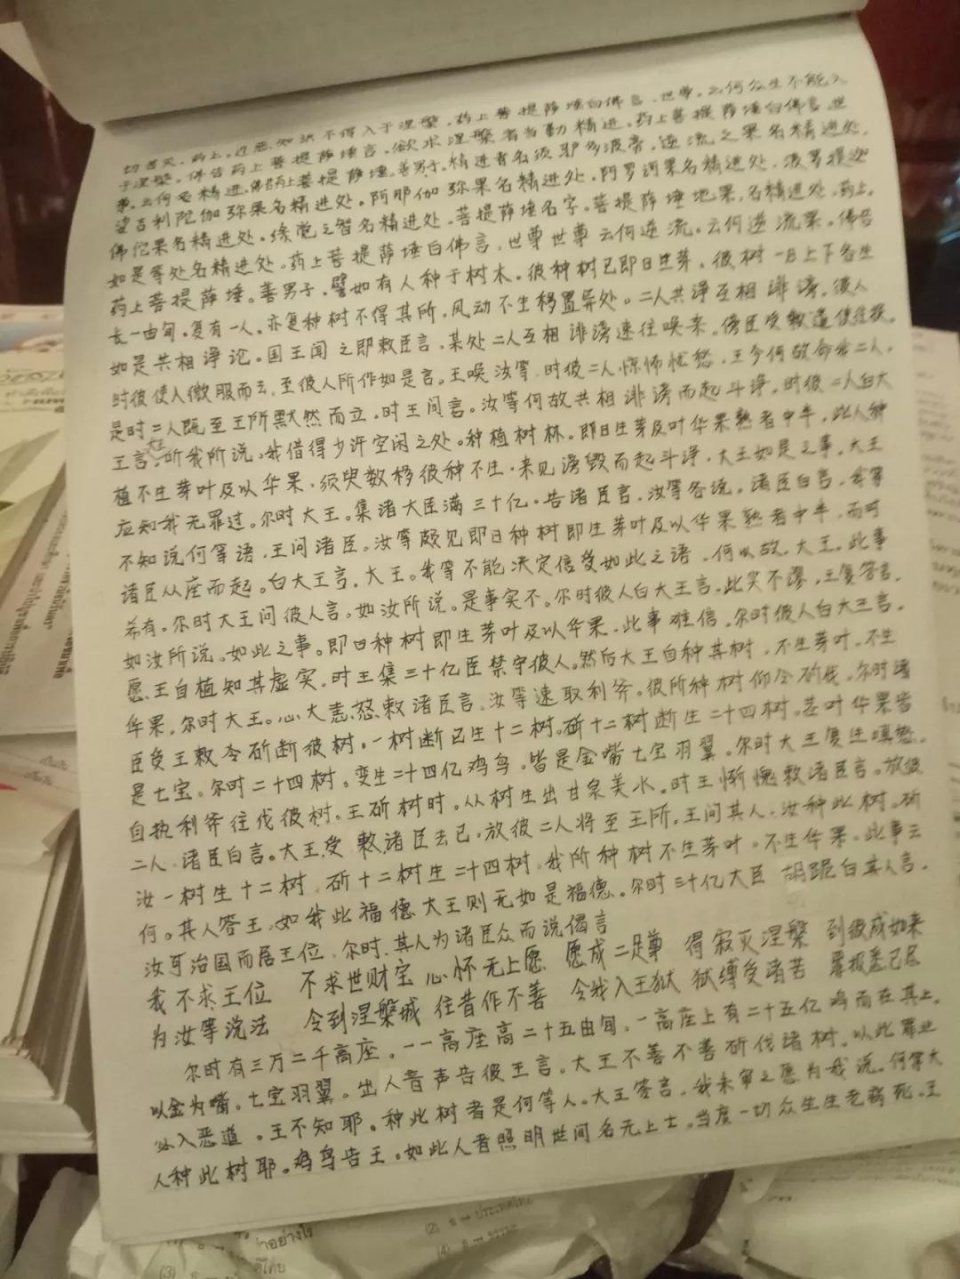 切苦灭。药上。近恶知识不得入于涅槃。药上菩提萨埵白佛言。世尊。云何众生不能入
于涅槃。佛告药上菩提萨埵言。欲求涅槃者当勤精进。药上菩提萨埵白佛言。世
尊。云何名精进。佛告药上菩提萨埵。善男子。精进者名须驮多波帝。逆流之果名精进处。
娑吉利陀伽弥果名精进处。阿那伽弥果名精进处。阿罗诃果名精进处。波罗提迦
佛陀果名精进处。缘觉之智名精进处。菩提萨埵名字。菩提萨埵地果。名精进处。药上。
如是等处名精进处。药上菩提萨埵白佛言。世尊世尊云何逆流。云何逆流果。佛告
药上菩提萨埵。善男子。譬如有人种于树木。彼种树已即日生芽。彼树一日上下各生
长一由旬。复有一人。亦复种树不得其所。风动不生移置异处。二人共诤互相诽谤。彼人
如是共相诤论。国王闻之即敕臣言。某处二人互相诽谤速往唤来。傍臣受敕遣使往捉。
时彼使人微服而去。至彼人所作如是言。王唤汝等。时彼二人。惊怖忧愁。王今何故命我二人。
是时二人既至王所默然而立。时王问言。汝等何故共相诽谤而起斗诤。时彼二人白大
王言。大王听我所说。我借得少许空闲之处。种植树林。即日生芽及叶华果熟者中半。此人种
植不生芽叶及以华果。须臾数移彼种不生。来见谤毁而起斗诤。大王如是之事。大王
应知我无罪过。尔时大王。集诸大臣满三十亿。告诸臣言。汝等各说。诸臣白言。我等
不知说何等语。王问诸臣。汝等颇见即日种树即生芽叶及以华果熟者中半。而时
诸臣从座而起。白大王言。大王。我等不能决定信受如此之语。何以故。大王。此事
希有。尔时大王问彼人言。如汝所说。是事实不。尔时彼人白大王言。此实不谬。王复答言。
如汝所说。如此之事。即日种树即生芽叶及以华果。此事难信。尔时彼人白大王言。
愿王自植知其虚实。时王集三十亿臣禁守彼人。然后大王自种其树。不生芽叶。不生
华果。尔时大王。心大恚怒敕诸臣言。汝等速取利斧。彼所种树仰令斫伐。尔时诸
臣受王敕令斫断彼树。一树断已生十二树。斫十二树断生二十四树。茎叶华果皆
是七宝。尔时二十四树。变生二十四亿鸡鸟。皆是金嘴七宝羽翼。尔时大王复生嗔怒。
自执利斧往伐彼树。王斫树时。从树生出甘泉美水。时王惭愧敕诸臣言。放彼
二人。诸臣白言。大王受敕诸臣去已。放彼二人将至王所。王问其人。汝种此树。斫
汝一树生十二树。斫十二树生二十四树。我所种树不生芽叶。不生华果。此事云
何。其人答王。如我此福德大王则无如是福德。尔时三十亿大臣胡跪白其人言。
汝可治国而居王位。尔时。其人为诸臣众而说偈言
我不求王位 不求世财宝 心怀无上愿 愿成二足尊 得寂灭涅槃 到彼成如来
为汝等说法 令到涅槃城 往昔作不善 令我入王狱 狱缚受诸苦 罪报悉已尽
尔时有三万二千高座。一一高座高二十五由旬。一高座上有二十五亿鸡而在其上。
以金为嘴。七宝羽翼。出人音声告彼王言。大王不善不善斫伐诸树。以此罪业
必入恶道。王不知耶。种此树者是何等人。大王答言。我未审之愿为我说。何等大
人种此树耶。鸡鸟告王。如此人者照明世间名无上士。当度一切众生生老病死。王
(2)
(3)
(4)